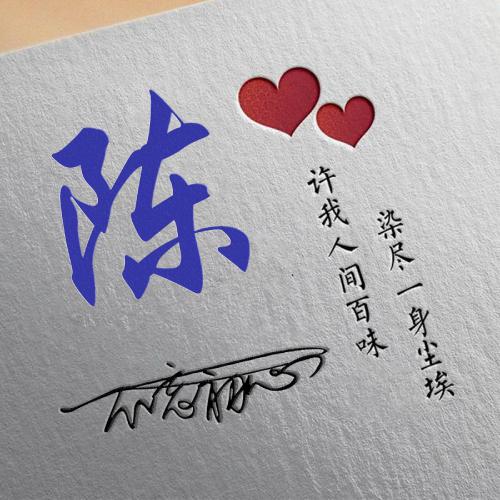 陈
许我人间百味
染尽一身尘埃